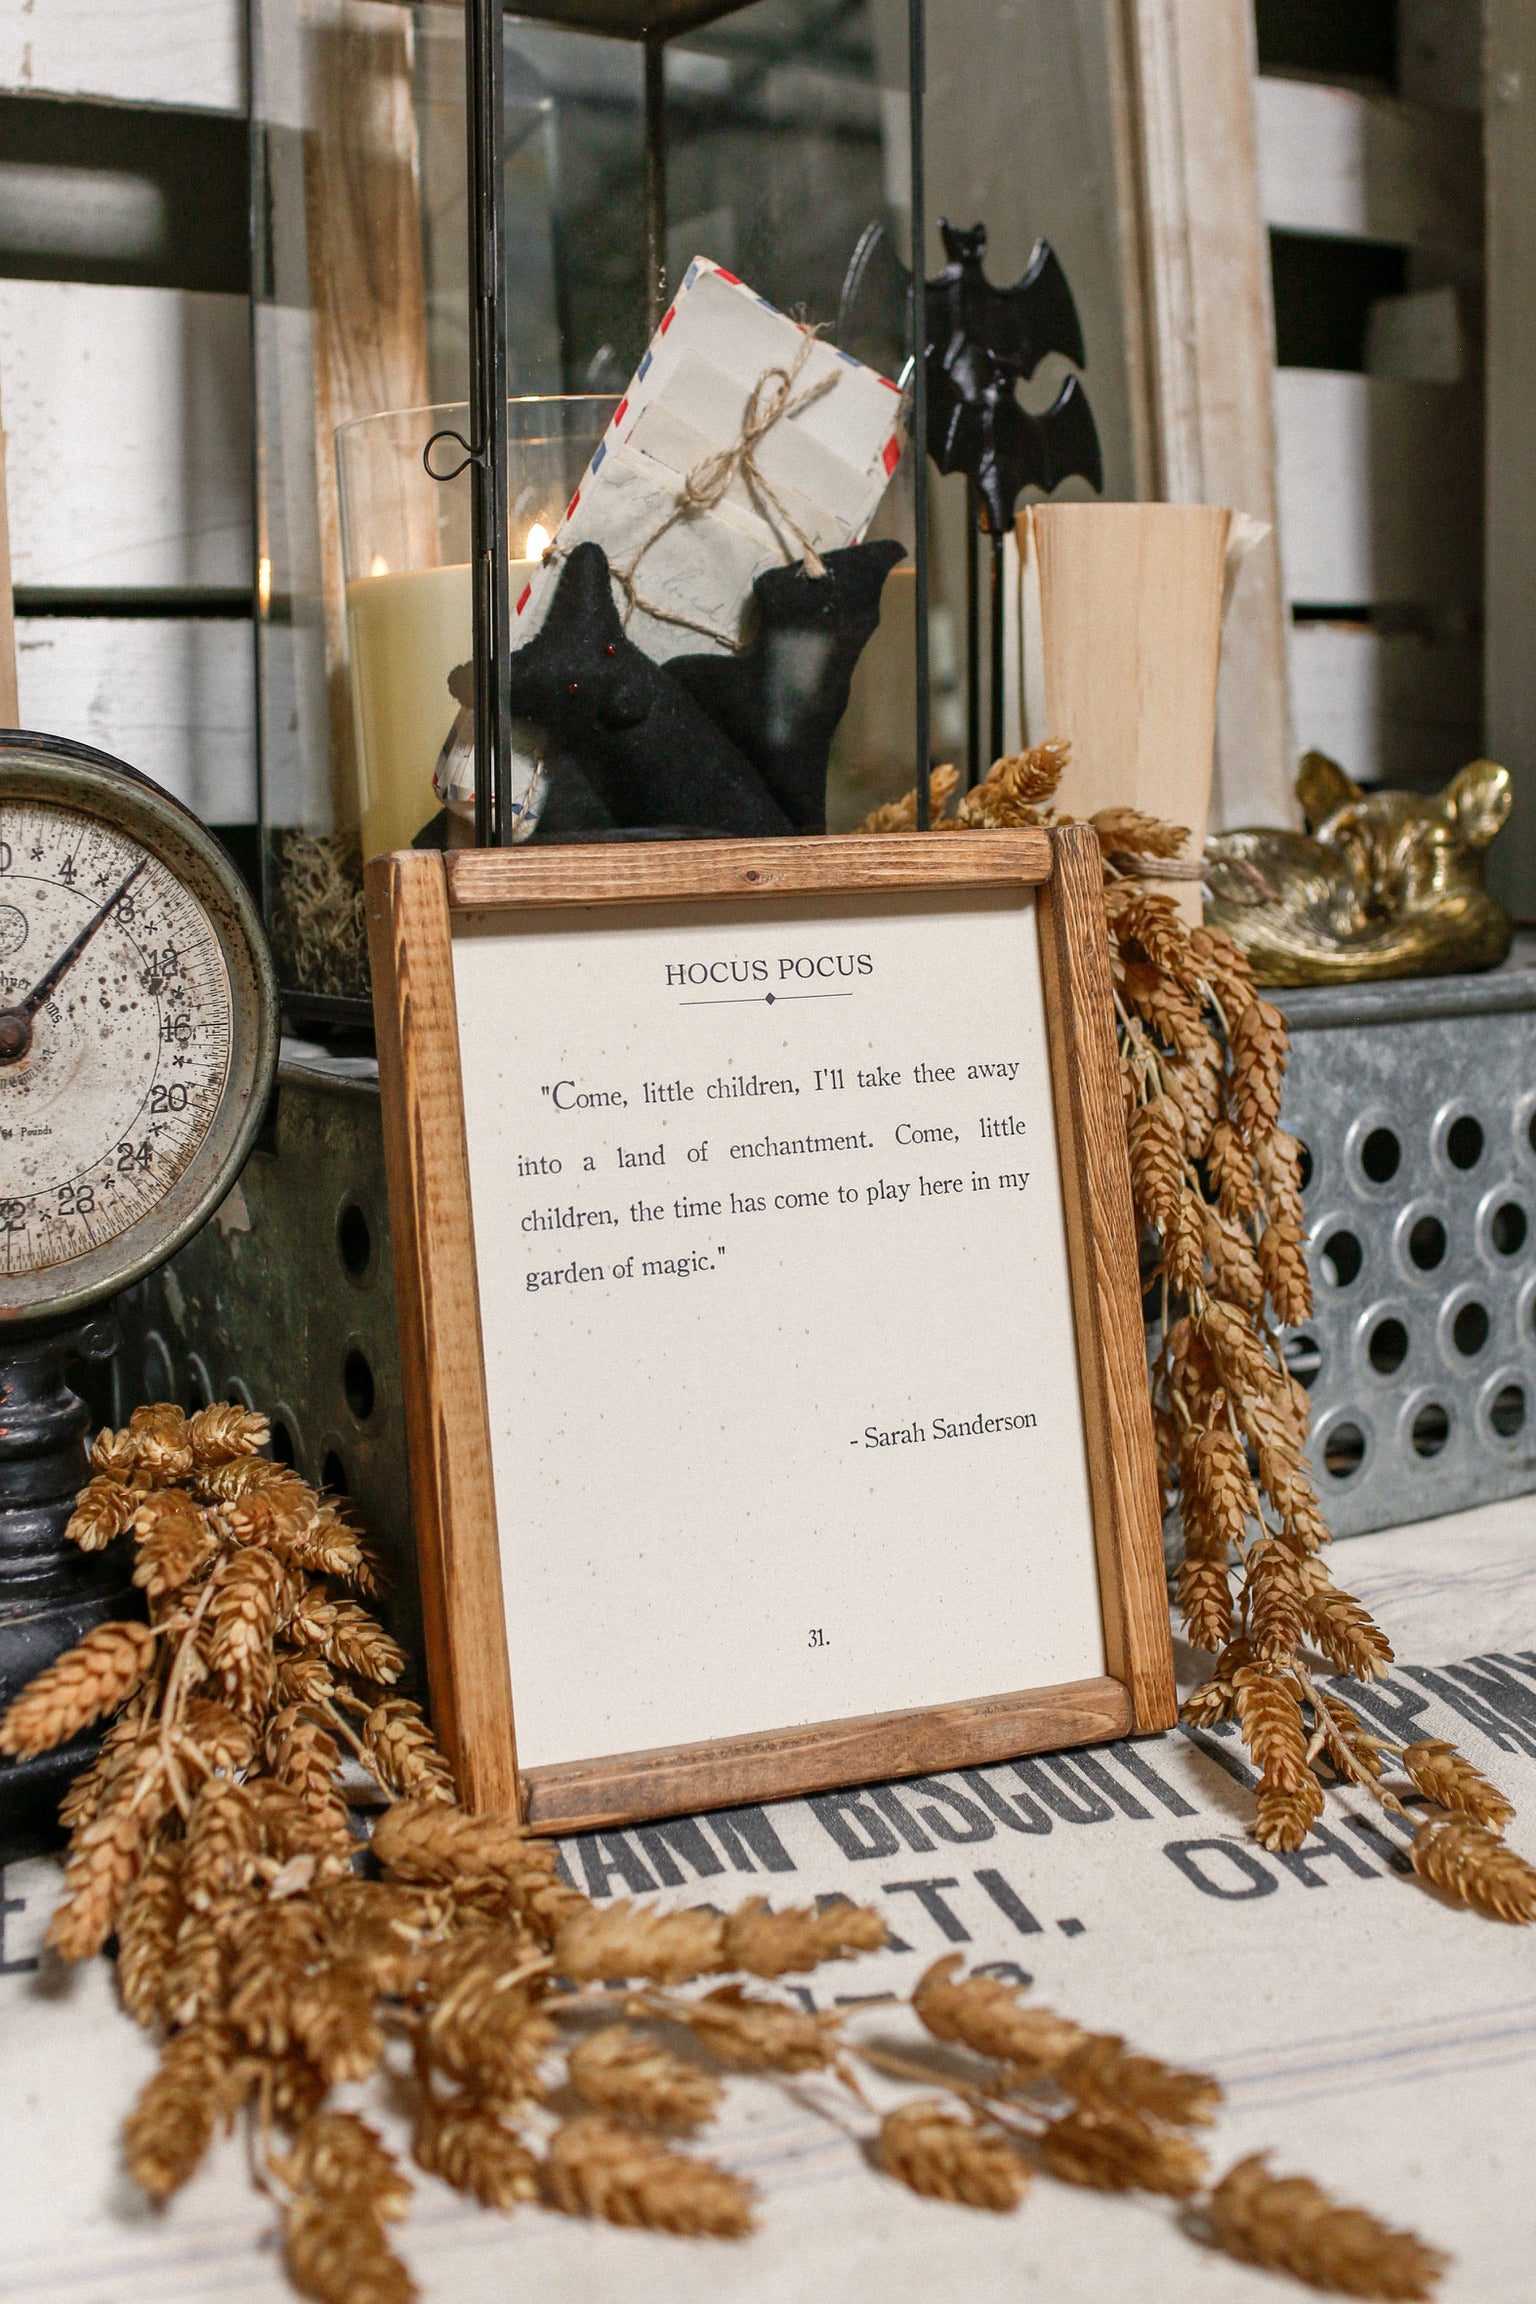 HOCUS POCUS
"Come, little children, I'll take thee away
into a land of enchantment. Come, little
children, the time has come to play here in my
garden of magic."
- Sarah Sanderson
31.
4
8
12
16
20
24
28
32
Pounds
BISCUIT
OHIO